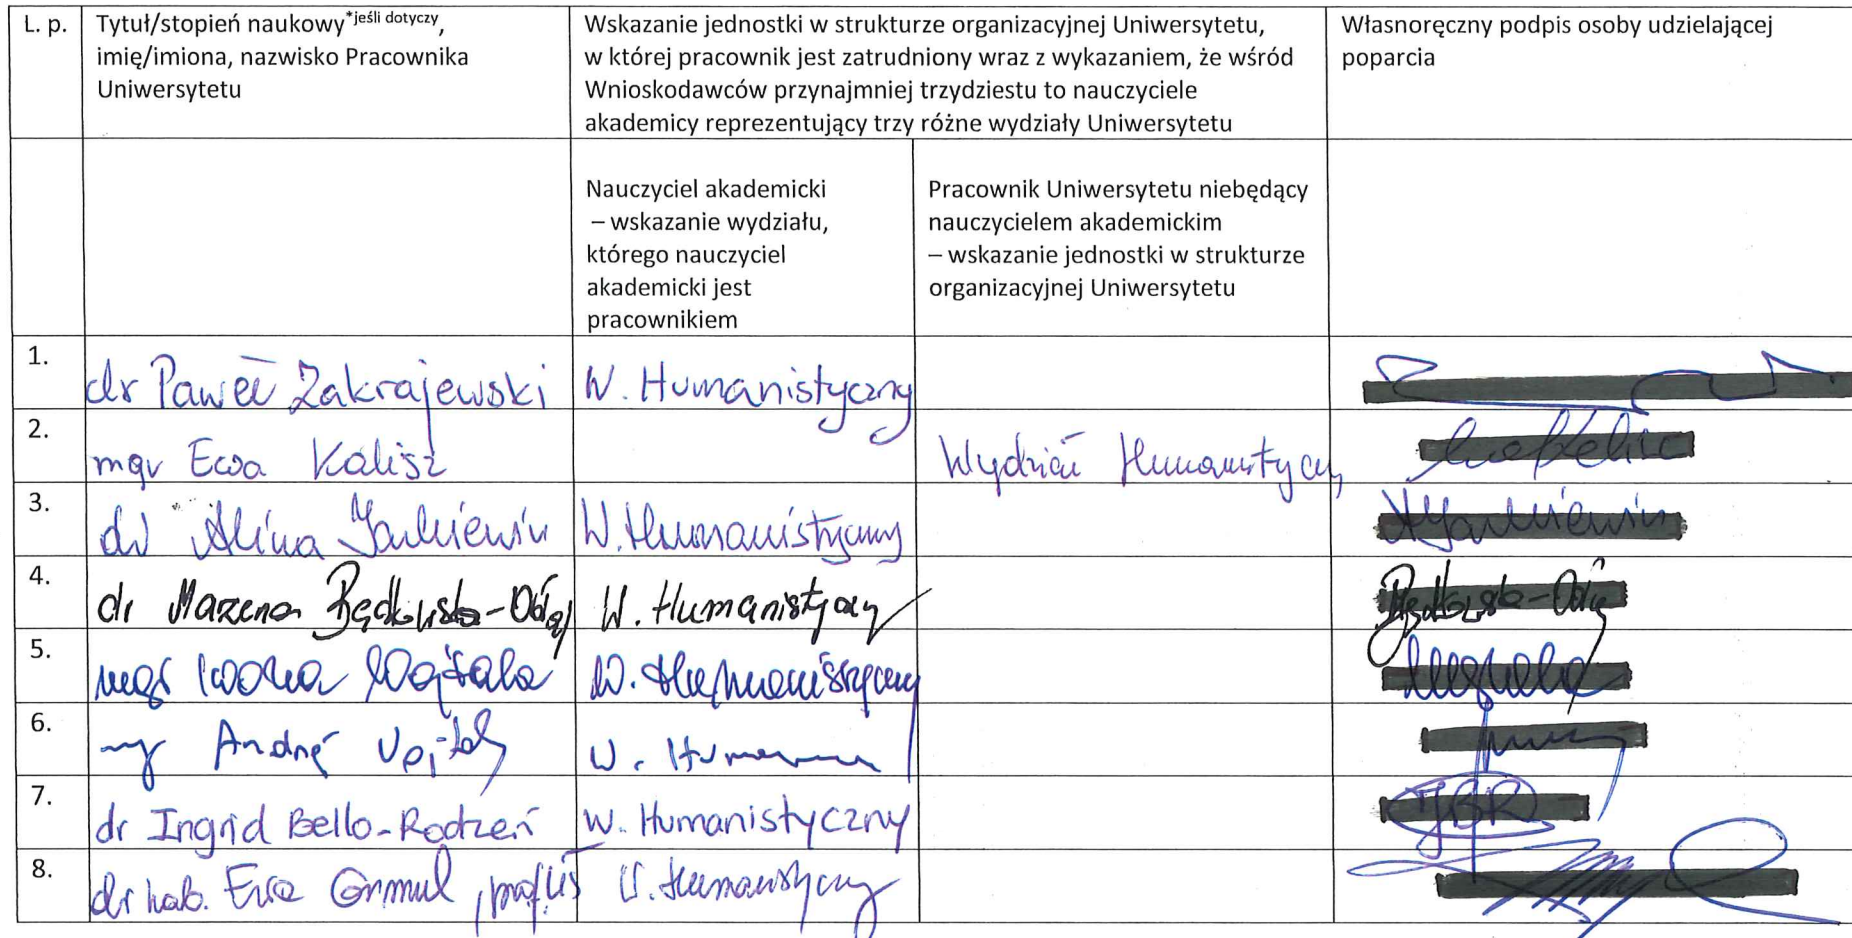 L. p.
Tytuł/stopień naukowy*jeśli dotyczy,
imię/imiona, nazwisko Pracownika
Uniwersytetu
Wskazanie jednostki w strukturze organizacyjnej Uniwersytetu,
w której pracownik jest zatrudniony wraz z wykazaniem, że wśród
Wnioskodawców przynajmniej trzydziestu to nauczyciele
akademicy reprezentujący trzy różne wydziały Uniwersytetu
Własnoręczny podpis osoby udzielającej
poparcia
Nauczyciel akademicki
– wskazanie wydziału,
którego nauczyciel
akademicki jest
pracownikiem
Pracownik Uniwersytetu niebędący
nauczycielem akademickim
– wskazanie jednostki w strukturze
organizacyjnej Uniwersytetu
1.
dr Paweł Zakrajewski
W. Humanistyczny
2.
mgr Ewa Kalisz
Wydział Humanistyczny
3.
dr Alina Jankiewicz
W. Humanistyczny
4.
dr Marzena Będkowska-
W. Humanistyczny
5.
mgr Iwona Wojtala
W. Humanistyczny
6.
mgr
W.
7.
dr Ingrid Bello-Rodzeń
W. Humanistyczny
8.
dr hab. Ewa , prof. UŚ
W. Humanistyczny